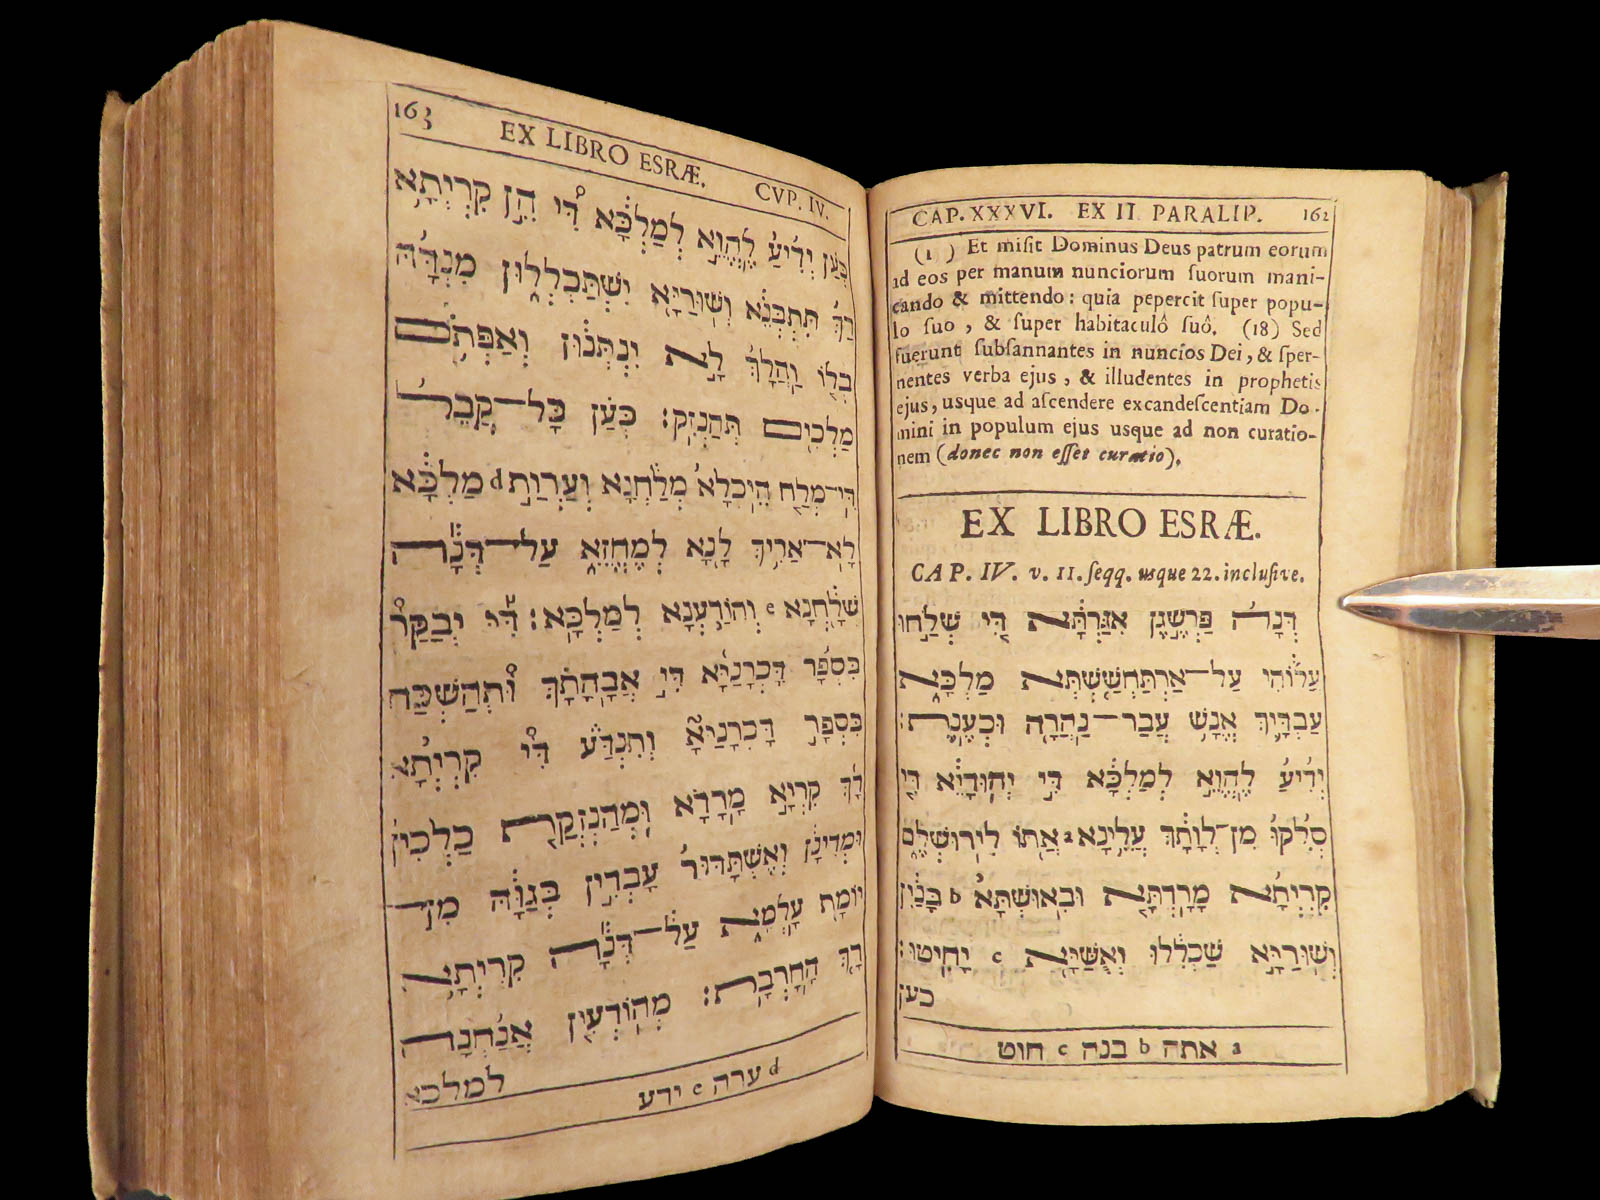 CAP. XXXVI. EX II PARALIP. 162
(1 ) Et misit Dominus Deus patrum eorum
ad eos per manum nunciorum suorum mani-
cando & mittendo: quia pepercit super popu-
lo suo, & super habitaculô suô. (18) Sed
fuerunt subsannantes in nuncios Dei, & sper-
nentes verba ejus, & illudentes in prophetis
ejus, usque ad ascendere excandescentiam Do-
mini in populum ejus usque ad non curatio-
nem (donec non esset curatio).
EX LIBRO ESRÆ.
CAP. IV. v. 11. seqq. usque 22. inclusive.
דְּנָה פַּרְשֶׁגֶן אִגַּרְתָּא דִּי שְׁלַחוּ
עֲלוֹהִי עַל־אַרְתַּחְשַׁשְׂתְּא מַלְכָּא
עַבְדָיךְ אֱנָשׁ עֲבַר־נַהֲרָה וּכְעֶנֶת:
יְדִיעַ לֶהֱוֵא לְמַלְכָּא דִּי יְהוּדָיֵא דִּי
סְלִקוּ מִן־לְוָתָךְ עֲלֶינָא a אֲתוֹ לִירוּשְׁלֶם
קִרְיְתָא מָרָדְתָּא וּבִאוּשְׁתָּא b בָּנַיִן
וְשׁוּרַיָּא שַׁכְלִלוּ וְאֻשַּׁיָּא c יָחִיטוּ:
כען
a אתה b בנה c חוט
163 EX LIBRO ESRÆ. CVP. IV.
כְּעַן יְדִיעַ לֶהֱוֵא לְמַלְכָּא דִּי הֵן קִרְיְתָא
דָךְ תִּתְבְּנֵא וְשׁוּרַיָּא יִשְׁתַּכְלְלוּן מִנְדָּה
בְלוֹ וַהֲלָךְ לָא יִנְתְּנוּן וְאַפְּתֹם
מַלְכִים תְּהַנְזִק: כְּעַן כָּל־קֳבֵל
דִּי־מְלַח הֵיכְלָא מְלַחְנָא וְעַרְוַת d מַלְכָּא
לָא־אֲרִיךְ לָנָא לְמֶחֱזֵא עַל־דְּנָה
שְׁלַחְנָא e וְהוֹדַעְנָא לְמַלְכָּא: דִּי יְבַקַּר
בִּסְפַר דָּכְרָנַיָּא דִּי אֲבָהָתָךְ וּתְהַשְׁכַּח
בִּסְפַר דָּכְרָנַיָּא וְתִנְדַּע דִּי קִרְיְתָא
דָךְ קִרְיָא מָרָדָא וּמְהַנְזְקַת מַלְכִין
וּמְדִנָן וְאֶשְׁתַּדּוּר עָבְדִין בְּגַוַּהּ מִן־
יוֹמָת עָלְמָא עַל־דְּנָה קִרְיְתָא
דָךְ הָחָרְבַת: מְהוֹדְעִין אֲנַחְנָה
למלכא
d ערה e ידע